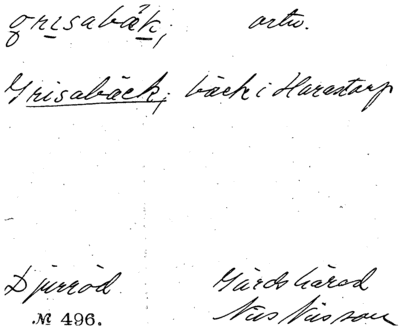 grisabäk; ortn.
Grisabäck; bäck i Harastarp
Djurröd Gärds härad
№ 496. Nils Nilsson